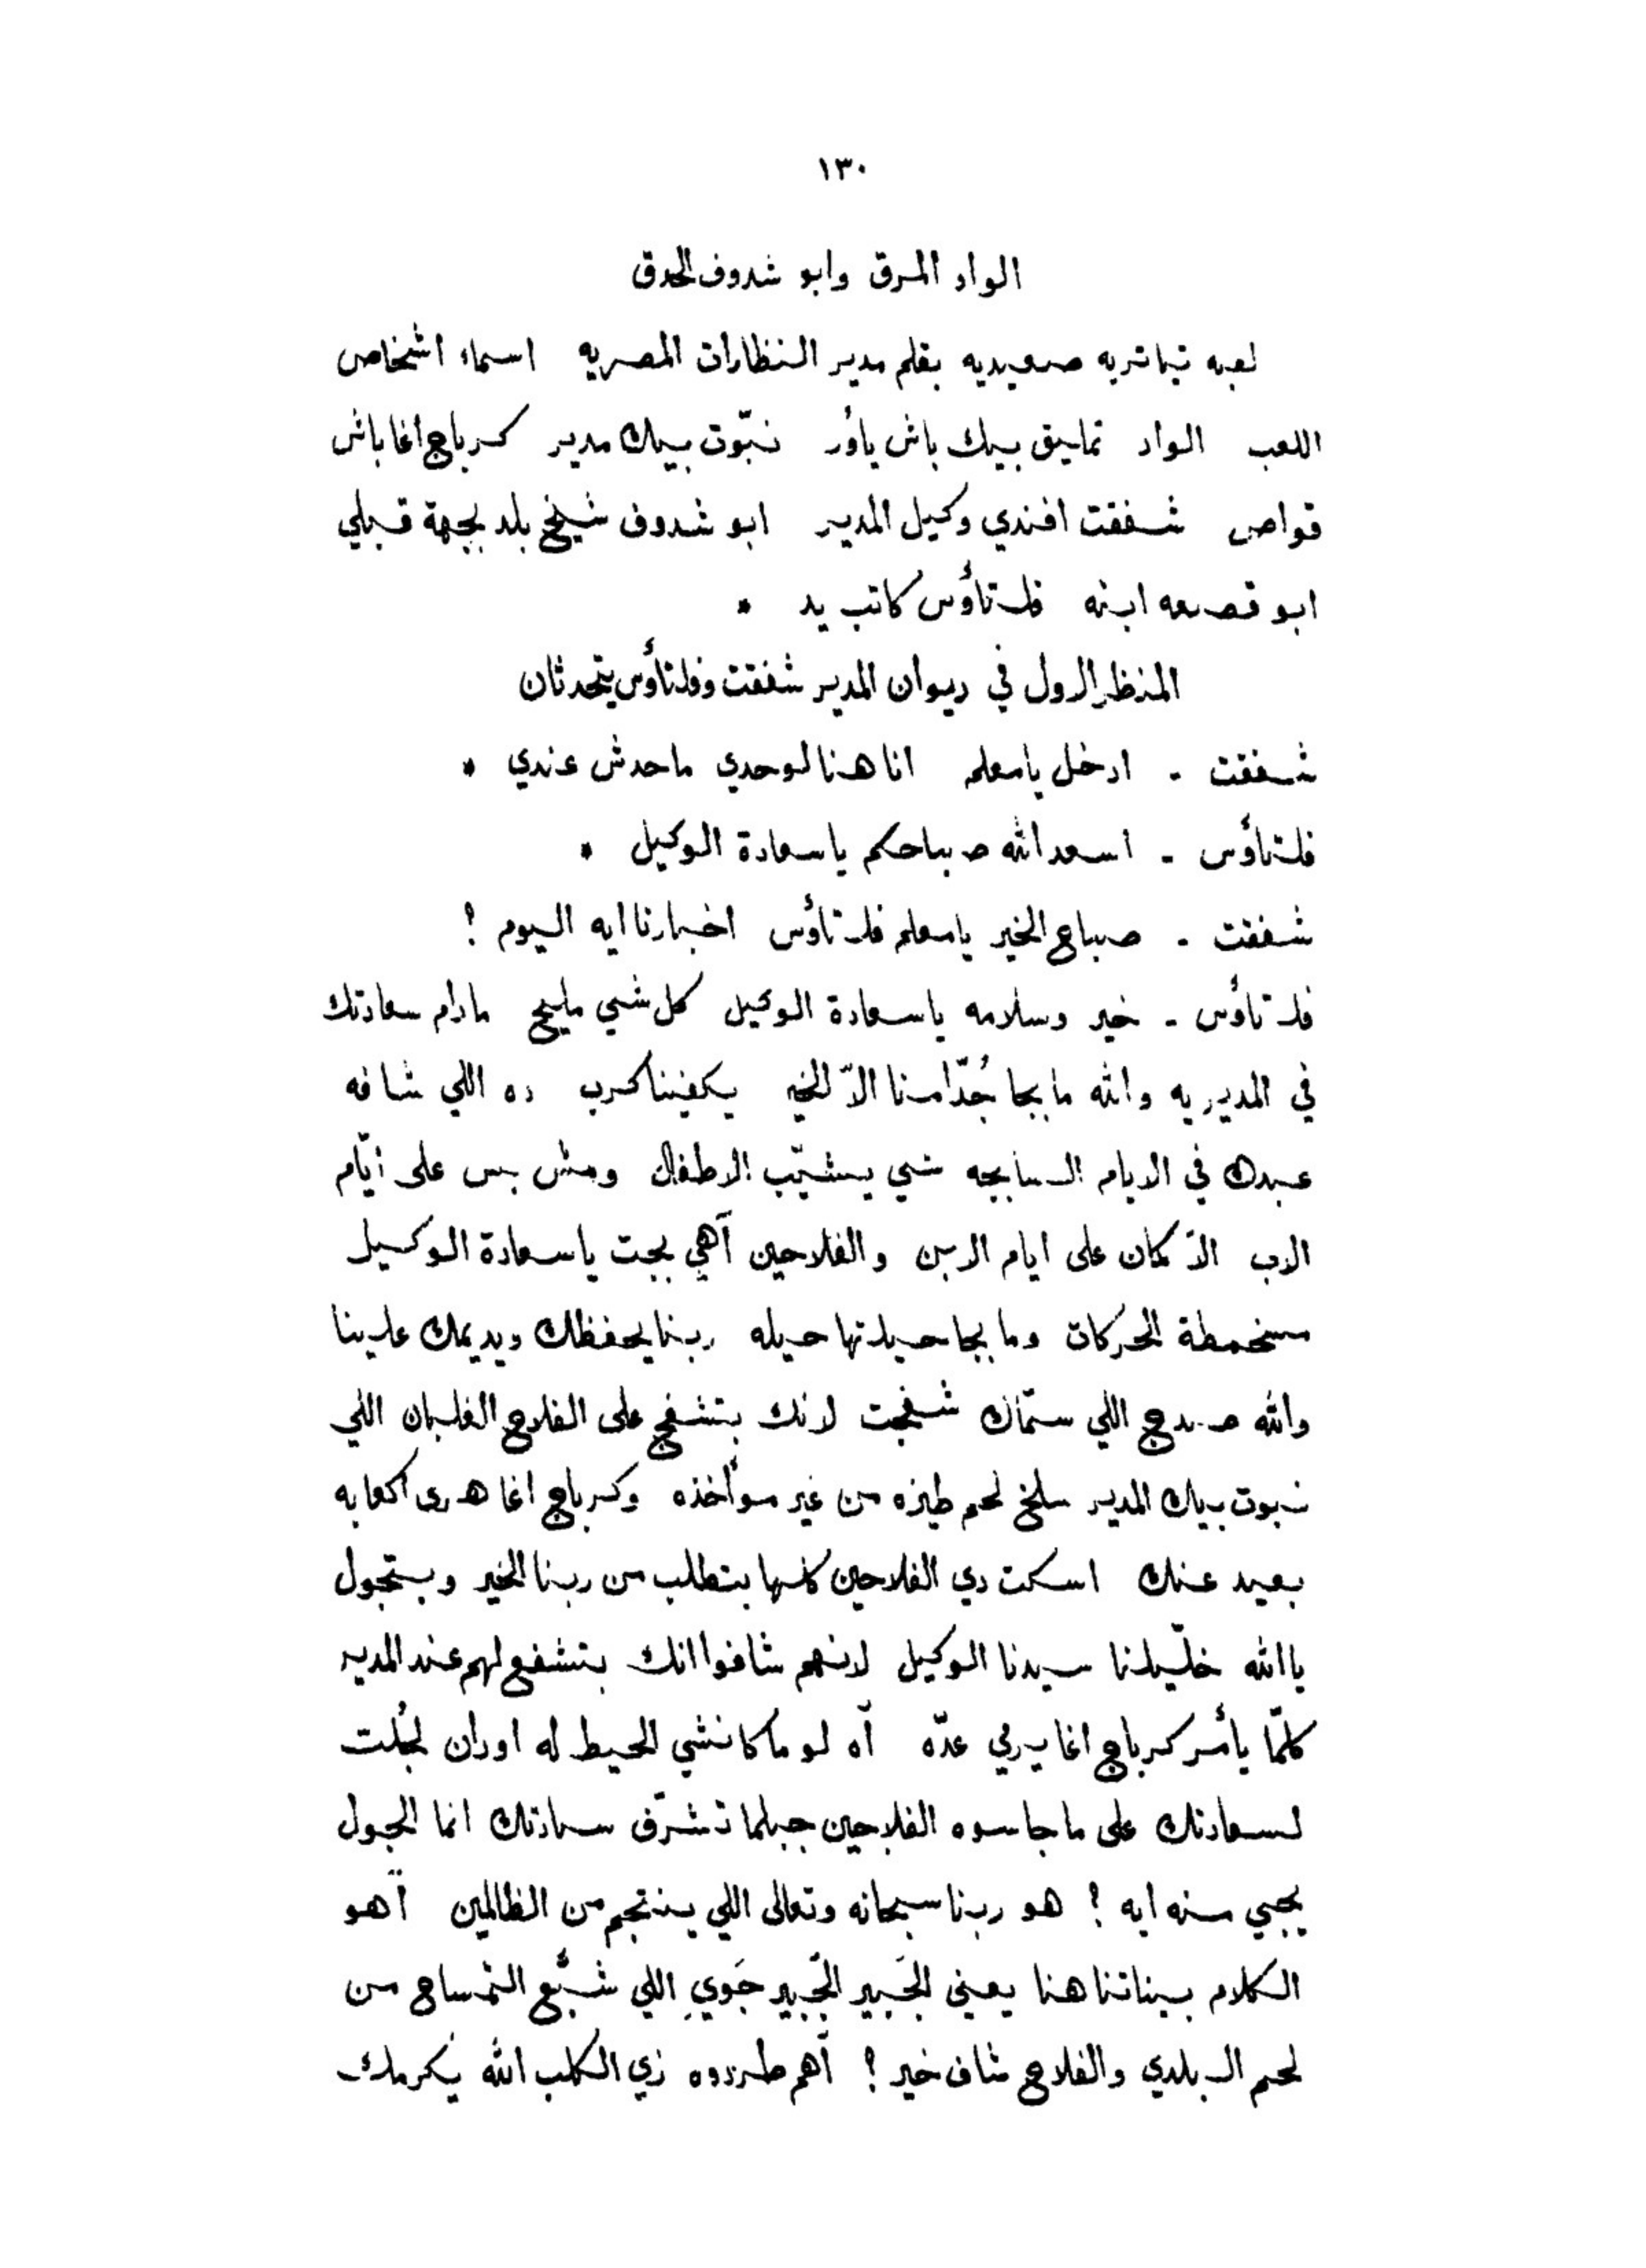 ١٣٠
الواد المرق وابو شدوف الحدق
لعبه تياتريه صعيديه بقلم مدير النظارات المصريه اسماء اشخاص
اللعب الواد تمليق بيك باش ياور نبّوت بيك مدير كرباج اغا باش
قواص شفقت افندي وكيل المدير ابو شدوف شيخ بلد بجهة قبلي
ابو قصعه ابنه فلتأوس كاتب يد *
المنظر الاول في ديوان المدير شفقت وفلتأوس يتحدثان
شفقت - ادخل يا معلم انا هنا لوحدي ما حدش عندي *
فلتأوس - اسعد الله صباحكم يا سعادة الوكيل *
شفقت - صباح الخير يا معلم فلتأوس اخبارنا ايه اليوم ؟
فلتأوس - خير وسلامه يا سعادة الوكيل كل شي مليح مادام سعادتك
في المديريه والله ما بجا جُدّامنا الاّ الخير يكفينا كرب ده اللي شافه
عبدك في الايام السابجه شي يشيّب الاطفال ومش بس على ايّام
الاب الاّ كمان على ايام الابن والفلاحين آهي بجت يا سعادة الوكيل
مسخمطة الحركات وما بجا حيلتها حيله ربنا يحفظك ويديمك علينا
والله صدج اللي سمّاك شفجت لانك بتشفج على الفلاح الغلبان اللي
نبوت بيك المدير سلخ لحم طيزه من غير مؤأخذه وكرباج اغا هرى اكعابه
بعيد عنك اسكت دي الفلاحين كلها بتطلب من ربنا الخير وبتجول
يا الله خلّيلنا سيدنا الوكيل لانهم شافوا انك بتشفع لهم عند المدير
كلمّا يأمر كرباج اغا يرمي عدّه آه لو ما كانشي الحيط له اودان لجُلت
لسعادتك على ما جاسوه الفلاحين جبلما تشرّف سعادتك انما الجول
يجيي منه ايه ؟ هو ربنا سبحانه وتعالى اللي ينتجم من الظالمين آهو
الكلام بيناتنا هنا يعني الجَبير الجَبير جَوي اللي شبّع التمساح من
لحم البلدي والفلاح شاف خير ؟ آهم طردوه زي الكلب الله يكرمك